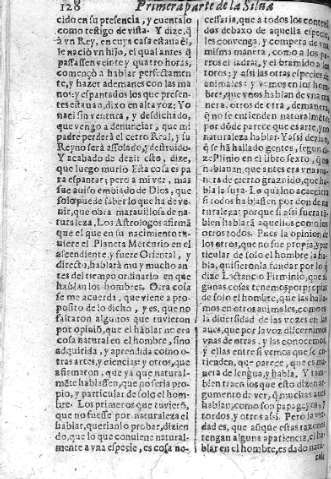 128 Primera parte de la Silua
cido en su presencia, y cuentalo
como testigo de vista. Y dize, q̃
à vn Rey, en cuya casa estaua él,
le nacio vn hijo, el qual antes q̃
passassen veinte y quatro horas,
començò a hablar perfectamen
te, y hazer ademanes con las ma
nos: y espantados los que presen
tes estauan, dixo en alta voz: Yo
naci sin ventura, y desdichado,
que vengo a denunciar, que mi
padre perderá el cetro Real, y su
Reyno será assolado, y destruido.
Y acabado de dezir esto, dize,
que luego murio. Esta cosa es pa
ra espantar; pero a mi ver, mas
fue auiso embiado de Dios, que
solo puede saber lo que ha de ve-
nir, que obra marauillosa de na-
turaleza. Los Astrologos afirmã
que el que en su nacimiento tu-
uiere el Planeta Mercurio en el
ascendiente, y fuere Oriental, y
directo, hablará muy mucho an-
tes del tiempo ordinario en que
hablan los hombres. Otra cosa
se me acuerda, que viene a pro-
posito de lo dicho, y es, que no
faltaron algunos que tuuieron
por opiniõ, que el hablar no era
cosa natural en el hombre, sino
adquirida, y aprendida como o-
tras artes, y ciencias y otros, que
afirmaron, que ya que natural-
mẽte hablassen, que no seria pro
pio, y particular de solo el hom-
bre. Los primeros que tuuierõ,
que no fuesse por naturaleza el
hablar, querianlo probar, diziẽn
do, que lo que conuiene natural-
mente a vna especie, es cosa ne-
cessaria, que a todos los conte
dos debaxo de aquella especie,
les conuenga, y competa de vna
misma manera, como a los pe-
rros el ladrar, y el bramido a los
toros: y assi las otras especies de
animales: y vemos en los hom-
bres, que vnos hablan de vna ma
nera, otros de otra, demanera,
q̃ no se entienden
por dõde parece que esto no es
naturaleza hablar. Y assi dizen
q̃ se hã hallado gentes, segun di-
ze Plinio en el libro sexto, que
no hablan, que antes era vna ma
nera de cierto graznido, que ha-
bla la suya. Lo qual no acaeceria
si todos hablassen por don de na
turaleza: porque si assi fuera, tam
bien hablarà aquellos como los
otros todos. Pues la opinion de
los otros, que no fue propia, y par
ticular de solo el hombre la ha-
bla, quisieronla fundar por lo q̃
dize Lactancio Firmiano, que al
gunas cosas tenemos por propias
de solo el hombre, que las halla-
mos en otros animales, como es
la diuersidad de las vozes en las
aues, que por la voz diferencian
vnas de otras, y las conocemos,
y ellas entre si vemos que se en-
tienden, que parece, que es ma-
nera de lengua, y habla. Y tam-
bien traen los que esto dizen ar-
gumento de ver, q̃ muchas aues
hablan, como son papagayos, y
tordos, y otros assi. Pero la ver-
dad es, que aunque estas razones
tengan alguna apariencia, el ha-
blar en el hombre, es dado natu-